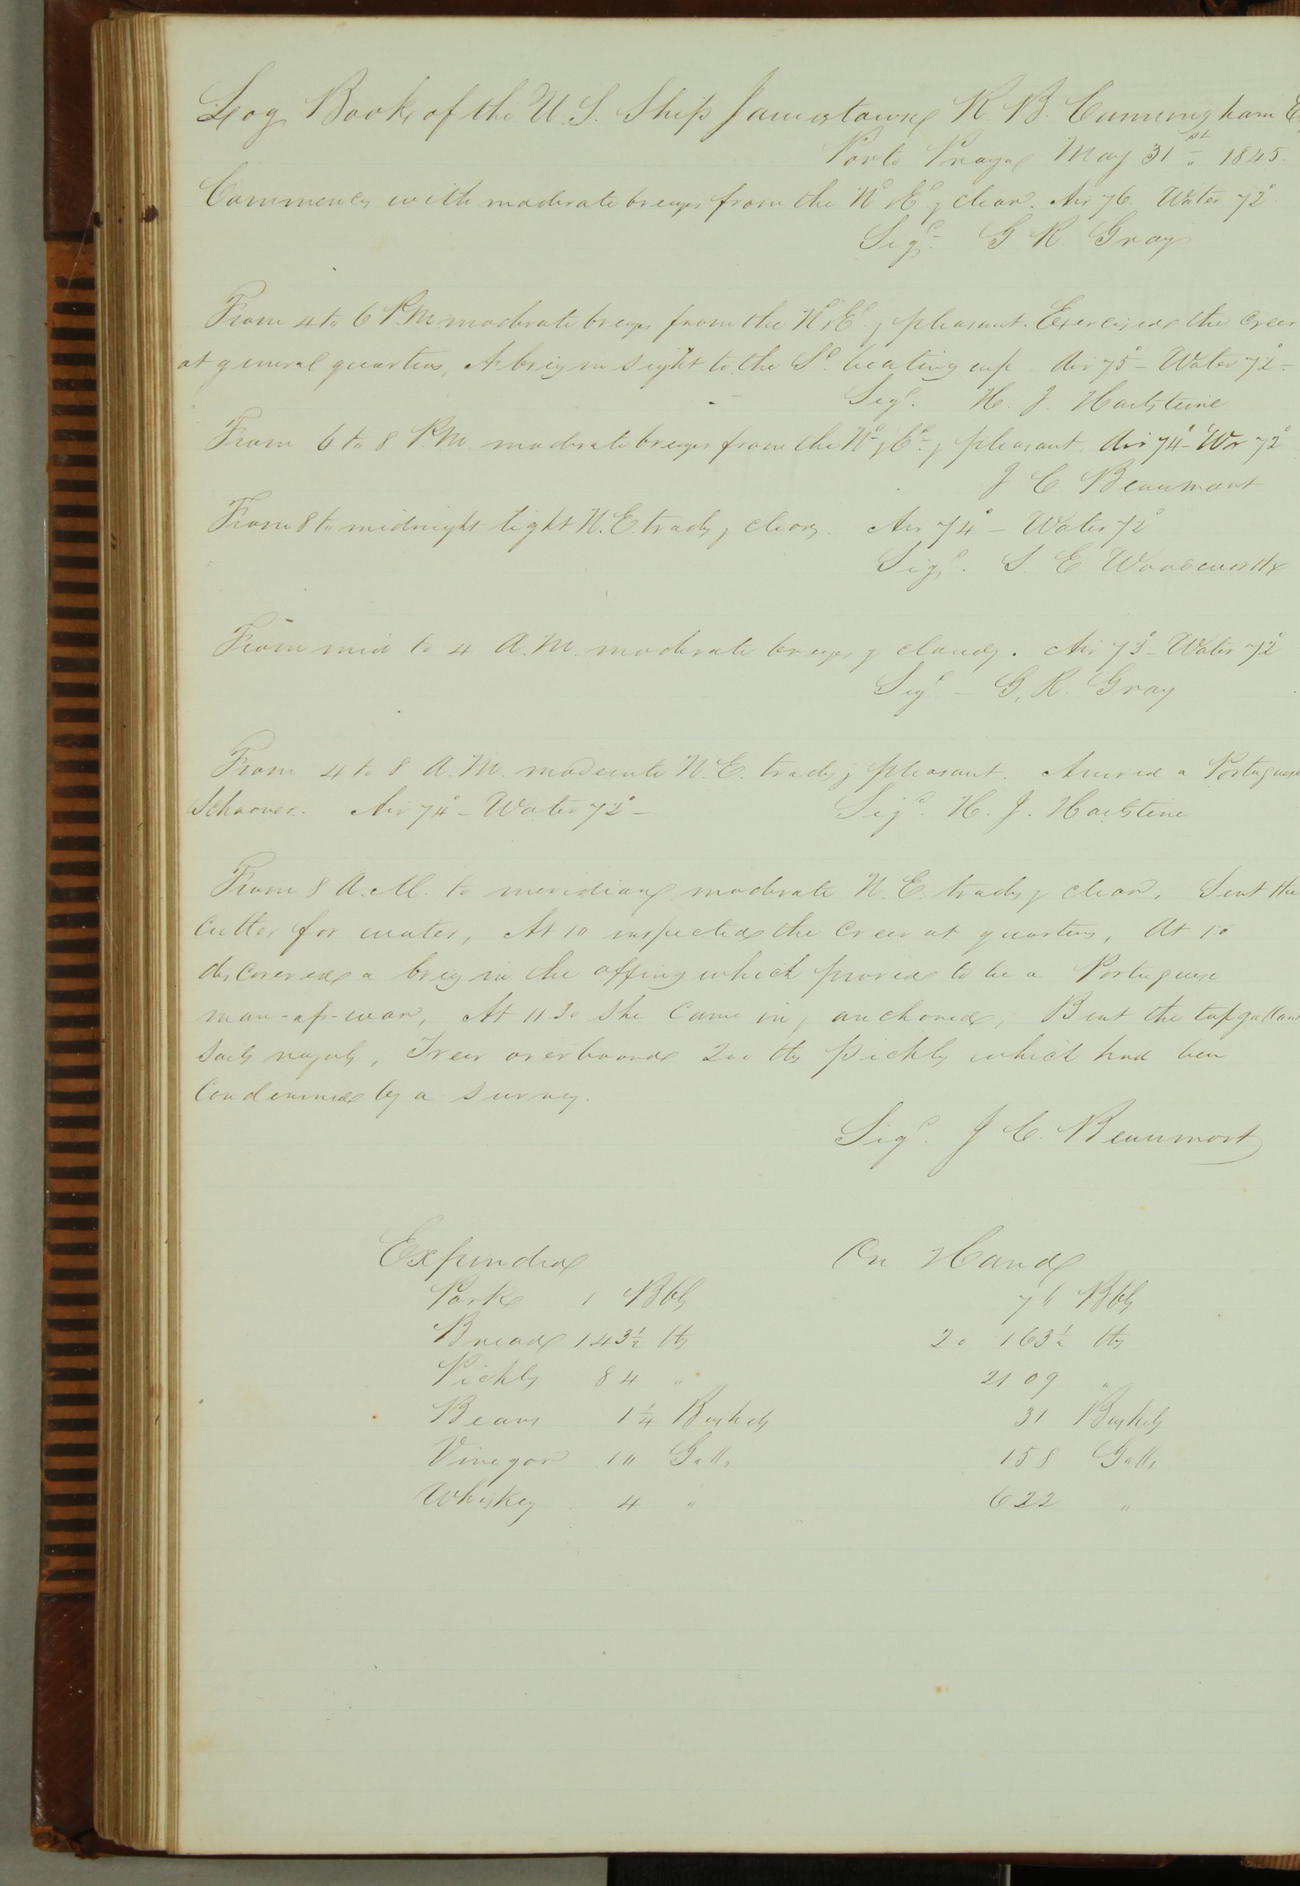 Log Book of the U.S. Ship Jamestown R. B. Cunningham E
Porto Praya May 31st 1845.
Commences with moderate breezes from the Nd & Ed & clear. Air 76. Water 72°.
Sigd. G R Gray
From 4 to 6 P.M. moderate breezes from the Nd & Ed & pleasant. Exercised the crew
at general quarters, A brig in sight to the Sd. beating up Air 75° - Water 72° -
Sigd. H. J. Hartstene
From 6 to 8 P.M. moderate breezes from the Nd & Ed & pleasant. Air 74° - Wr 72°
J C Beaumont
From 8 to midnight light N.E. trades & clear. Air 74° - Water 72°
Sigd. S. E Woodworth
From mid to 4 A.M. moderate breezes & cloudy. Air 73° - Water 72°
Sigd - G. R. Gray
From 4 to 8 A.M. moderate N.E. trades & pleasant. Arrived a Portuguese
Schooner. Air 74° - Water 72° -
Sigd. H. J. Hartstene
From 8 A.M. to meridian moderate N.E. trades & clear. Sent the
Cutter for water, At 10 inspected the crew at quarters, At 10
discovered a brig in the offing which proved to be a Portuguese
man-of-war, At 11 30 she came in & anchored, Bent the topgallant
sails & royals, Threw overboard 200 lbs pickles which had been
Condemned by a survey.
Sigd. J C. Beaumont
Expended On Hand
Pork 1 Bbls 76 Bbls
Bread 143½ lbs 20 163½ lbs
Pickles 84 " 2109 "
Beans 1¼ Bushels 31 Bushels
Vinegar 10 Galls 158 Galls
Whiskey 4 " 622 "